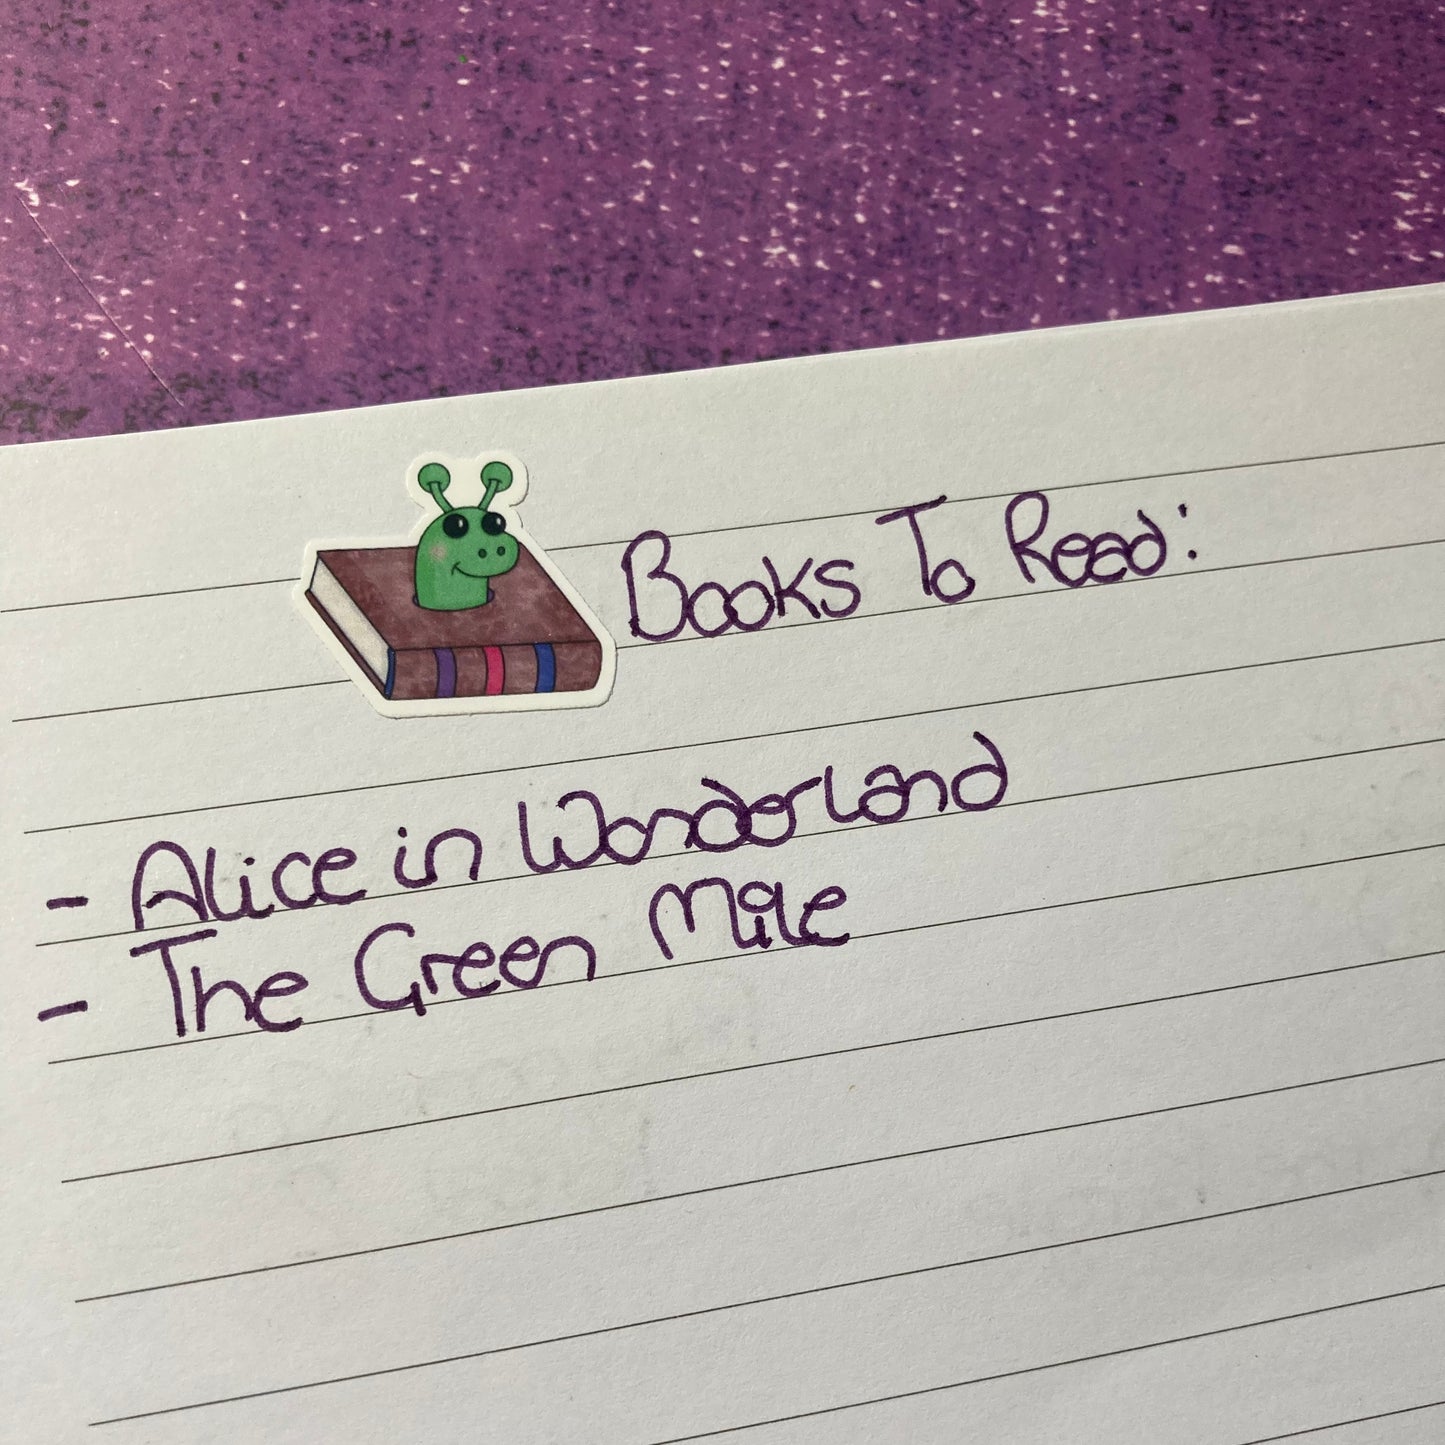 Books To Read:
- Alice in Wonderland
- The Green Mile